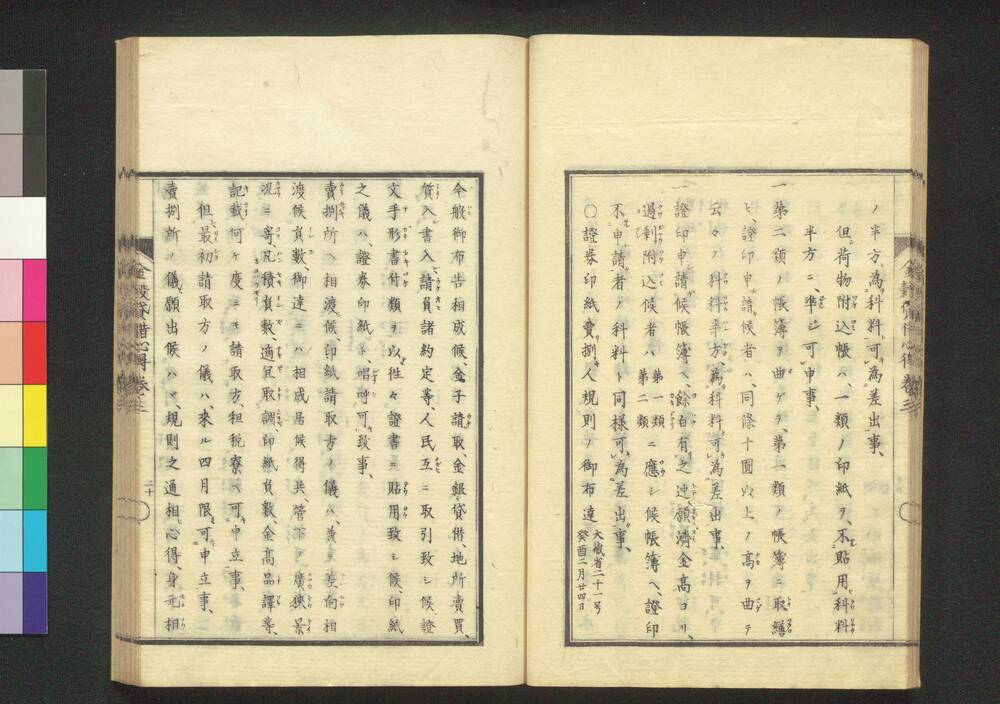 ノ半方、為科料可為差出事、
但荷物附込帳ハ、一類ノ印紙ヲ、不貼用科料
半方ニ、準シ可申事、
一第二類ノ帳簿ヲ曲ケテ、第一類ノ帳簿ニ取繕
ヒ、證印申請候者ハ、同條十圓以上ノ高ヲ曲テ
云々ノ科料半方、為科料可為差出事、
一證印申請候帳簿ヘ、餘白有之迚、願濟金高ヨリ、
過剰附込候者ハ、第一類第二類ニ應シ候帳簿ヘ、證印
不申請者ノ科料ト同様可為差出事、
〇證券印紙賣捌人規則ノ御布達 大蔵省二十一号 癸酉二月廿四日
今般御布告相成候、金子請取、金銀貸借、地所賣買、
質入書入請負諸約定等、人民互ニ取引致シ候、證
文手形書付類ヲ以、往々證書ニ貼用致シ候、印紙
之儀ハ、證券印紙ト唱呼可致事、
賣捌所ヘ相渡候、印紙請取方ノ儀ハ、差向相
渡候員數、御達ニハ相成居候得共、管部ノ廣狭景
況ニ寄、凡積員數、適宜取調印紙員數、金高品譯等、
記載何ケ度ニテモ請取方、租税寮ヘ可申立事、
但最初請取方ノ儀ハ、來ル四月限可申立事、
賣捌所ノ儀願出候ハヽ規則之通相心得、身元相
金穀貸借心得 巻之三
二十